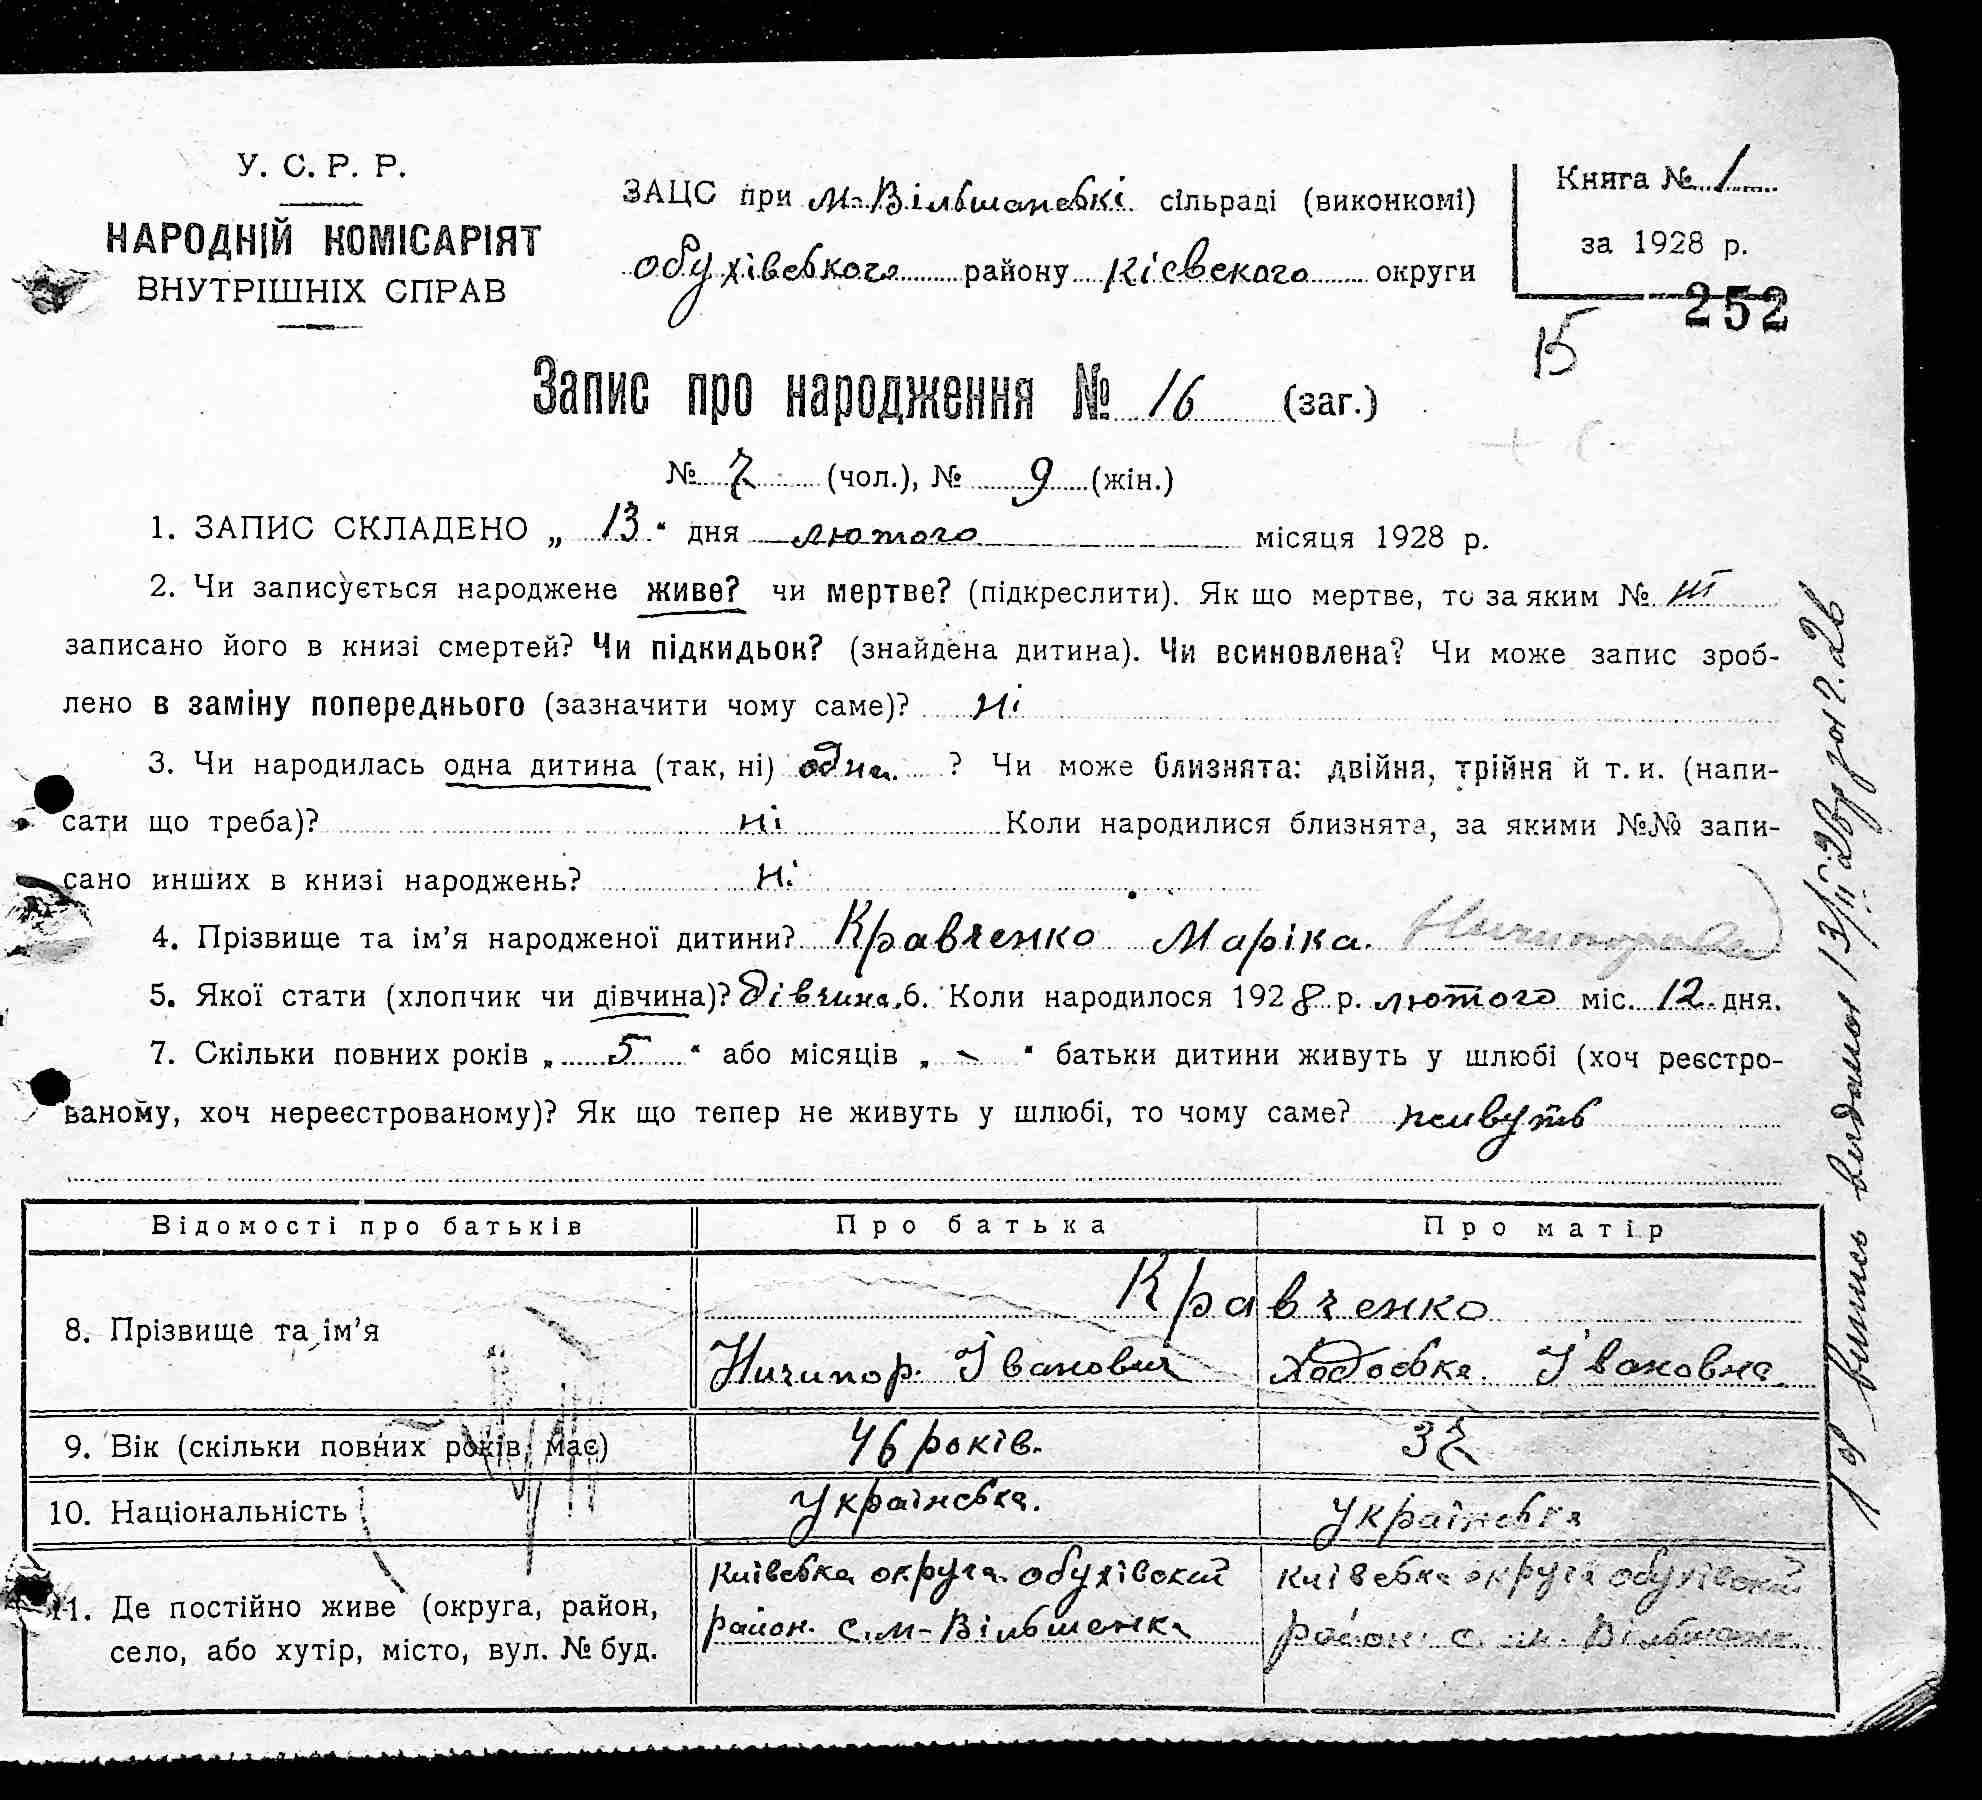 У. С. Р. Р.
НАРОДНІЙ КОМІСАРІЯТ
ВНУТРІШНІХ СПРАВ
ЗАЦС при М-Вільшанські сільраді (виконкомі)
обухівського району Кієвского округи
Книга № 1
за 1928 р.
252
15
Запис про народження № 16 (заг.)
№ 7 (чол.), № 9 (жін.)
1. ЗАПИС СКЛАДЕНО „ 13 “ дня лютого місяця 1928 р.
2. Чи записується народжене живе? чи мертве? (підкреслити). Як що мертве, то за яким №
записано його в книзі смертей? Чи підкидьок? (знайдена дитина). Чи всиновлена? Чи може запис зроб-
лено в заміну попереднього (зазначити чому саме)? ні
3. Чи народилась одна дитина (так, ні) одна ? Чи може близнята: двійня, трійня й т. и. (напи-
сати що треба)? ні Коли народилися близнята, за якими №№ запи-
сано инших в книзі народжень? ні
4. Прізвище та ім’я народженої дитини? Кравченко Маріка.
5. Якої стати (хлопчик чи дівчина)? дівчина 6. Коли народилося 1928 р. лютого міс. 12 дня.
7. Скільки повних років „ 5 “ або місяців „ - “ батьки дитини живуть у шлюбі (хоч реєстро-
ваному, хоч нереєстрованому)? Як що тепер не живуть у шлюбі, то чому саме? живуть
Відомості про батьків Про батька Про матір
8. Прізвище та ім’я Кравченко
Ничипор. Іванович Івановна
9. Вік (скільки повних років має) 46 років. 37
10. Національність Українська. Українська
11. Де постійно живе (округа, район,
село, або хутір, місто, вул. № буд.
Київська округа обухівский
район. с. М-Вільшанка
Київська округа обухівский
район. с. М. Вільшанк.
Выпись выдана 13/II 28